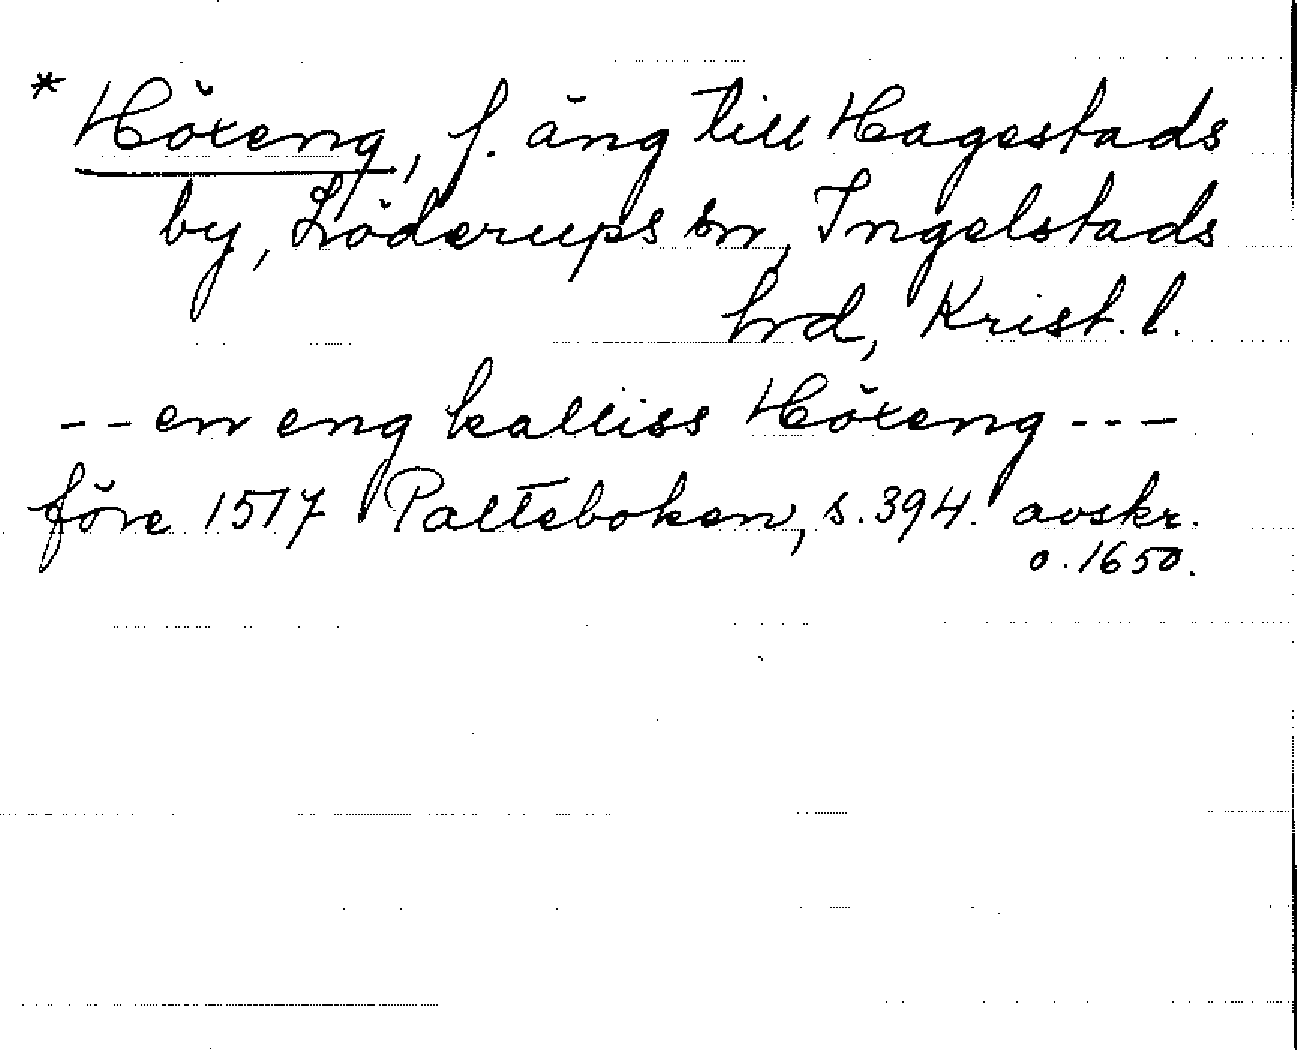 * Höxeng, f. äng till Hagestads
by, Löderups sn, Ingelstads
hrd, Krist. l.
-- en eng kalliss Höxeng ---
före 1517 Palteboken, s. 394. avskr.
o. 1650.